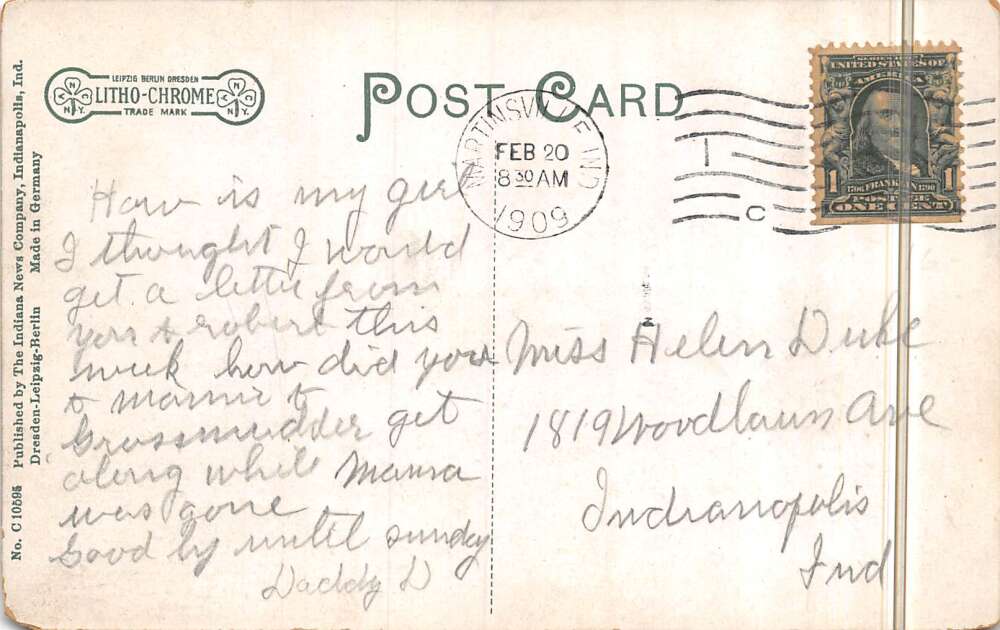 No. C 10595 Published by The Indiana News Company, Indianapolis, Ind.
Dresden-Leipzig-Berlin Made in Germany
LEIPZIG BERLIN DRESDEN
LITHO-CHROME
TRADE MARK
A N C
N.Y.
POST CARD
MARTINSVILLE IND
FEB 20
8 30 AM
1909
1
C
SERIES 1902
UNITED STATES OF
AMERICA
1
1
1706 FRANKLIN 1790
POSTAGE
ONE CENT
How is my girl
I thought I would
get a letter from
you & robert this
week how did you
& mamie &
Grossmudder get
along while Mama
was gone
Good by until sunday
Daddy D
Miss Helen Duke
1819 Woodlawn Ave
Indianapolis
Ind